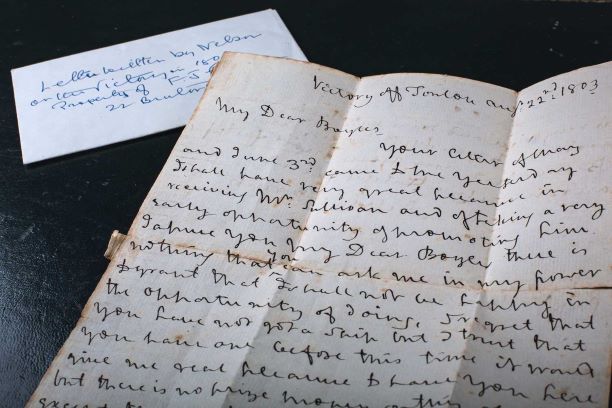 Letter written by Nelson
on the Victory in 180
Property of F. J.
22
Victory off Toulon Augt 22nd 1803
My Dear Bayles
Your letter of May
and June 3rd came to me yesterday
I shall have very great pleasure in
receiving Mr. Sullivan and of taking a very
early opportunity of promoting him
I assure you my Dear Boyes there is
nothing that you can ask me in my power
to grant that I shall not be happy in
the opportunity of doing, I regret that
you have not got a ship but I trust that
you have one before this time it would
give me real pleasure to have you here
but there is no prize money on this
except